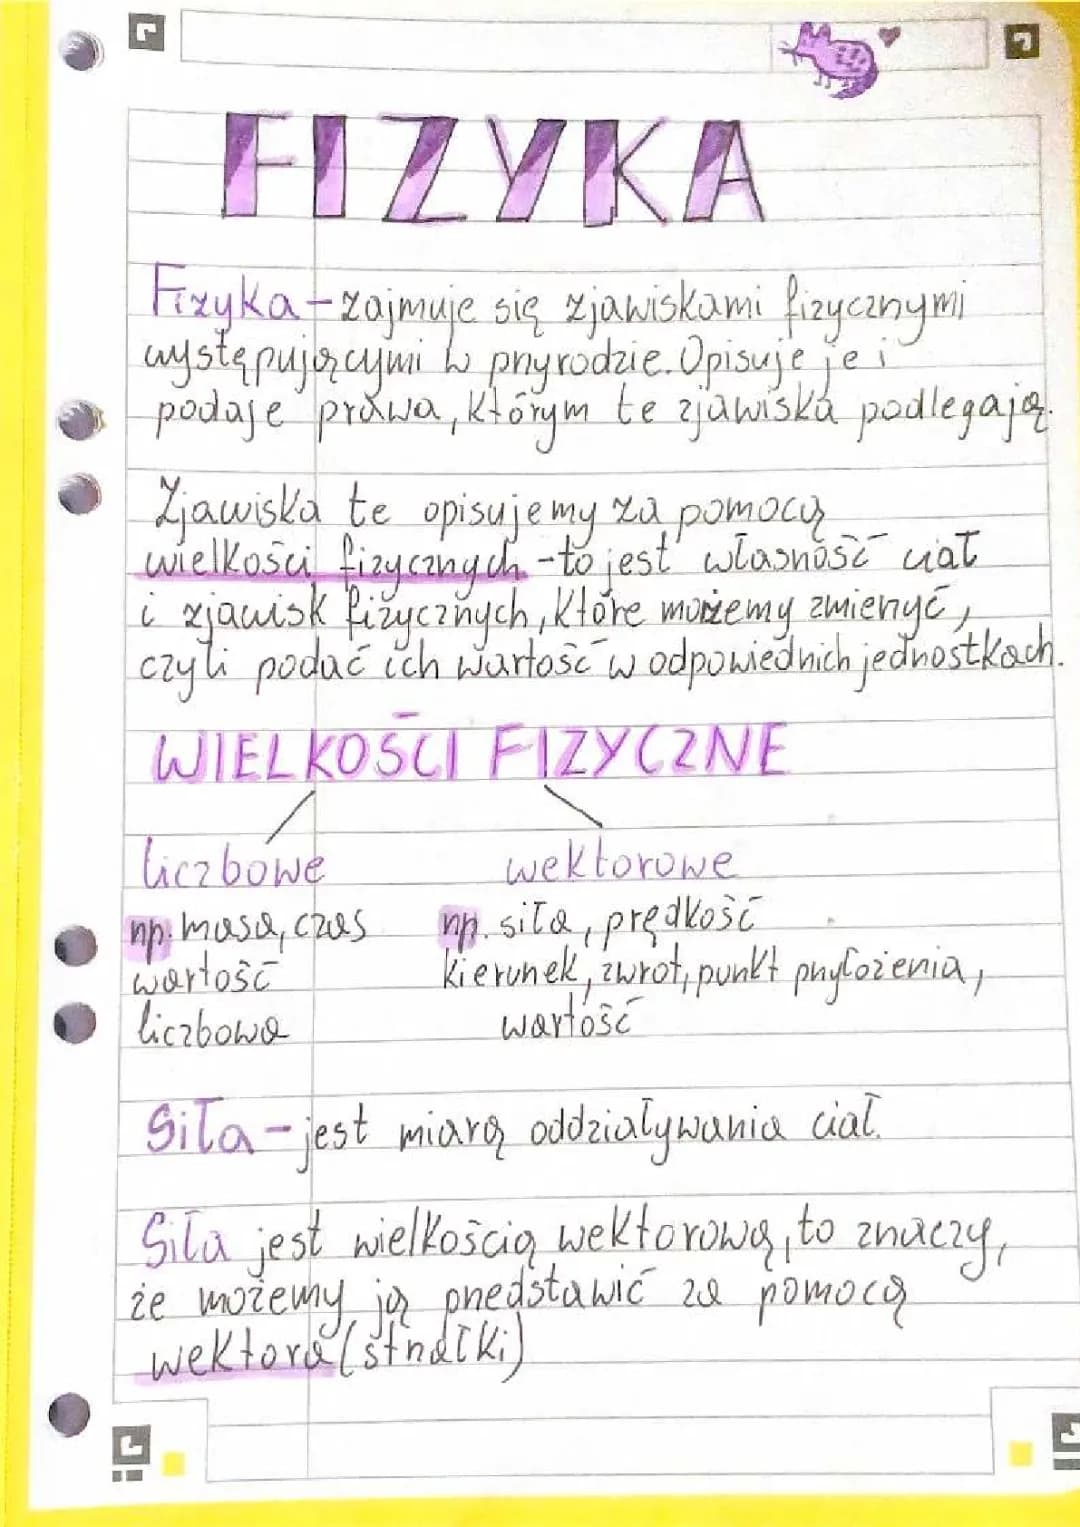 FIZYKA
Fizyka - zajmuje się zjawiskami fizycznymi
występującymi w przyrodzie. Opisuje je i
podaje prawa, którym te zjawiska podlegają.
Zjawiska te opisujemy za pomocą
wielkości fizycznych - to jest własność ciał
i zjawisk fizycznych, które możemy zmierzyć,
czyli podać ich wartość w odpowiednich jednostkach.
WIELKOŚCI FIZYCZNE
liczbowe
np. masa, czas
wartość
liczbowa
wektorowe
np. siła, prędkość
kierunek, zwrot, punkt przyłożenia,
wartość
Siła - jest miarą oddziaływania ciał.
Siła jest wielkością wektorową, to znaczy,
że możemy ją przedstawić za pomocą
wektora (strzałki)